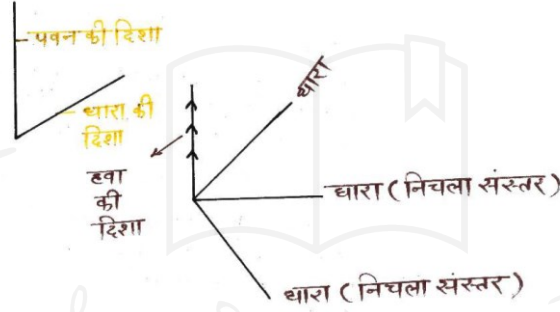 पवन की दिशा
धारा की
दिशा
धारा
हवा
की
दिशा
धारा (निचला संस्तर)
धारा (निचला संस्तर)